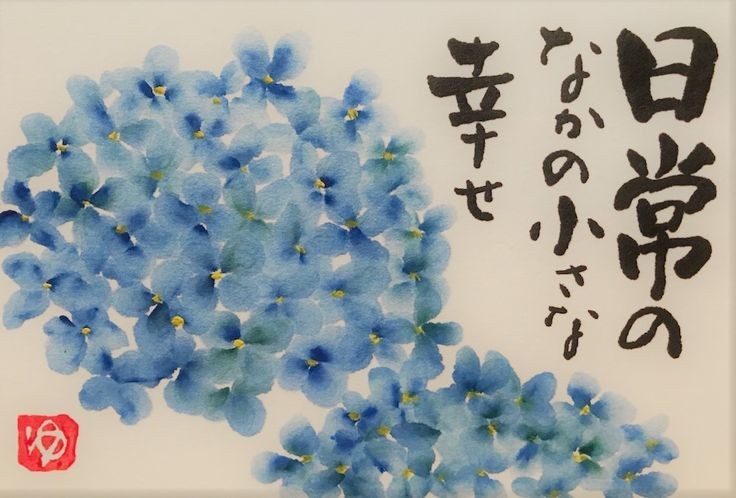 日常の
なかの小さな
幸せ
ゆ